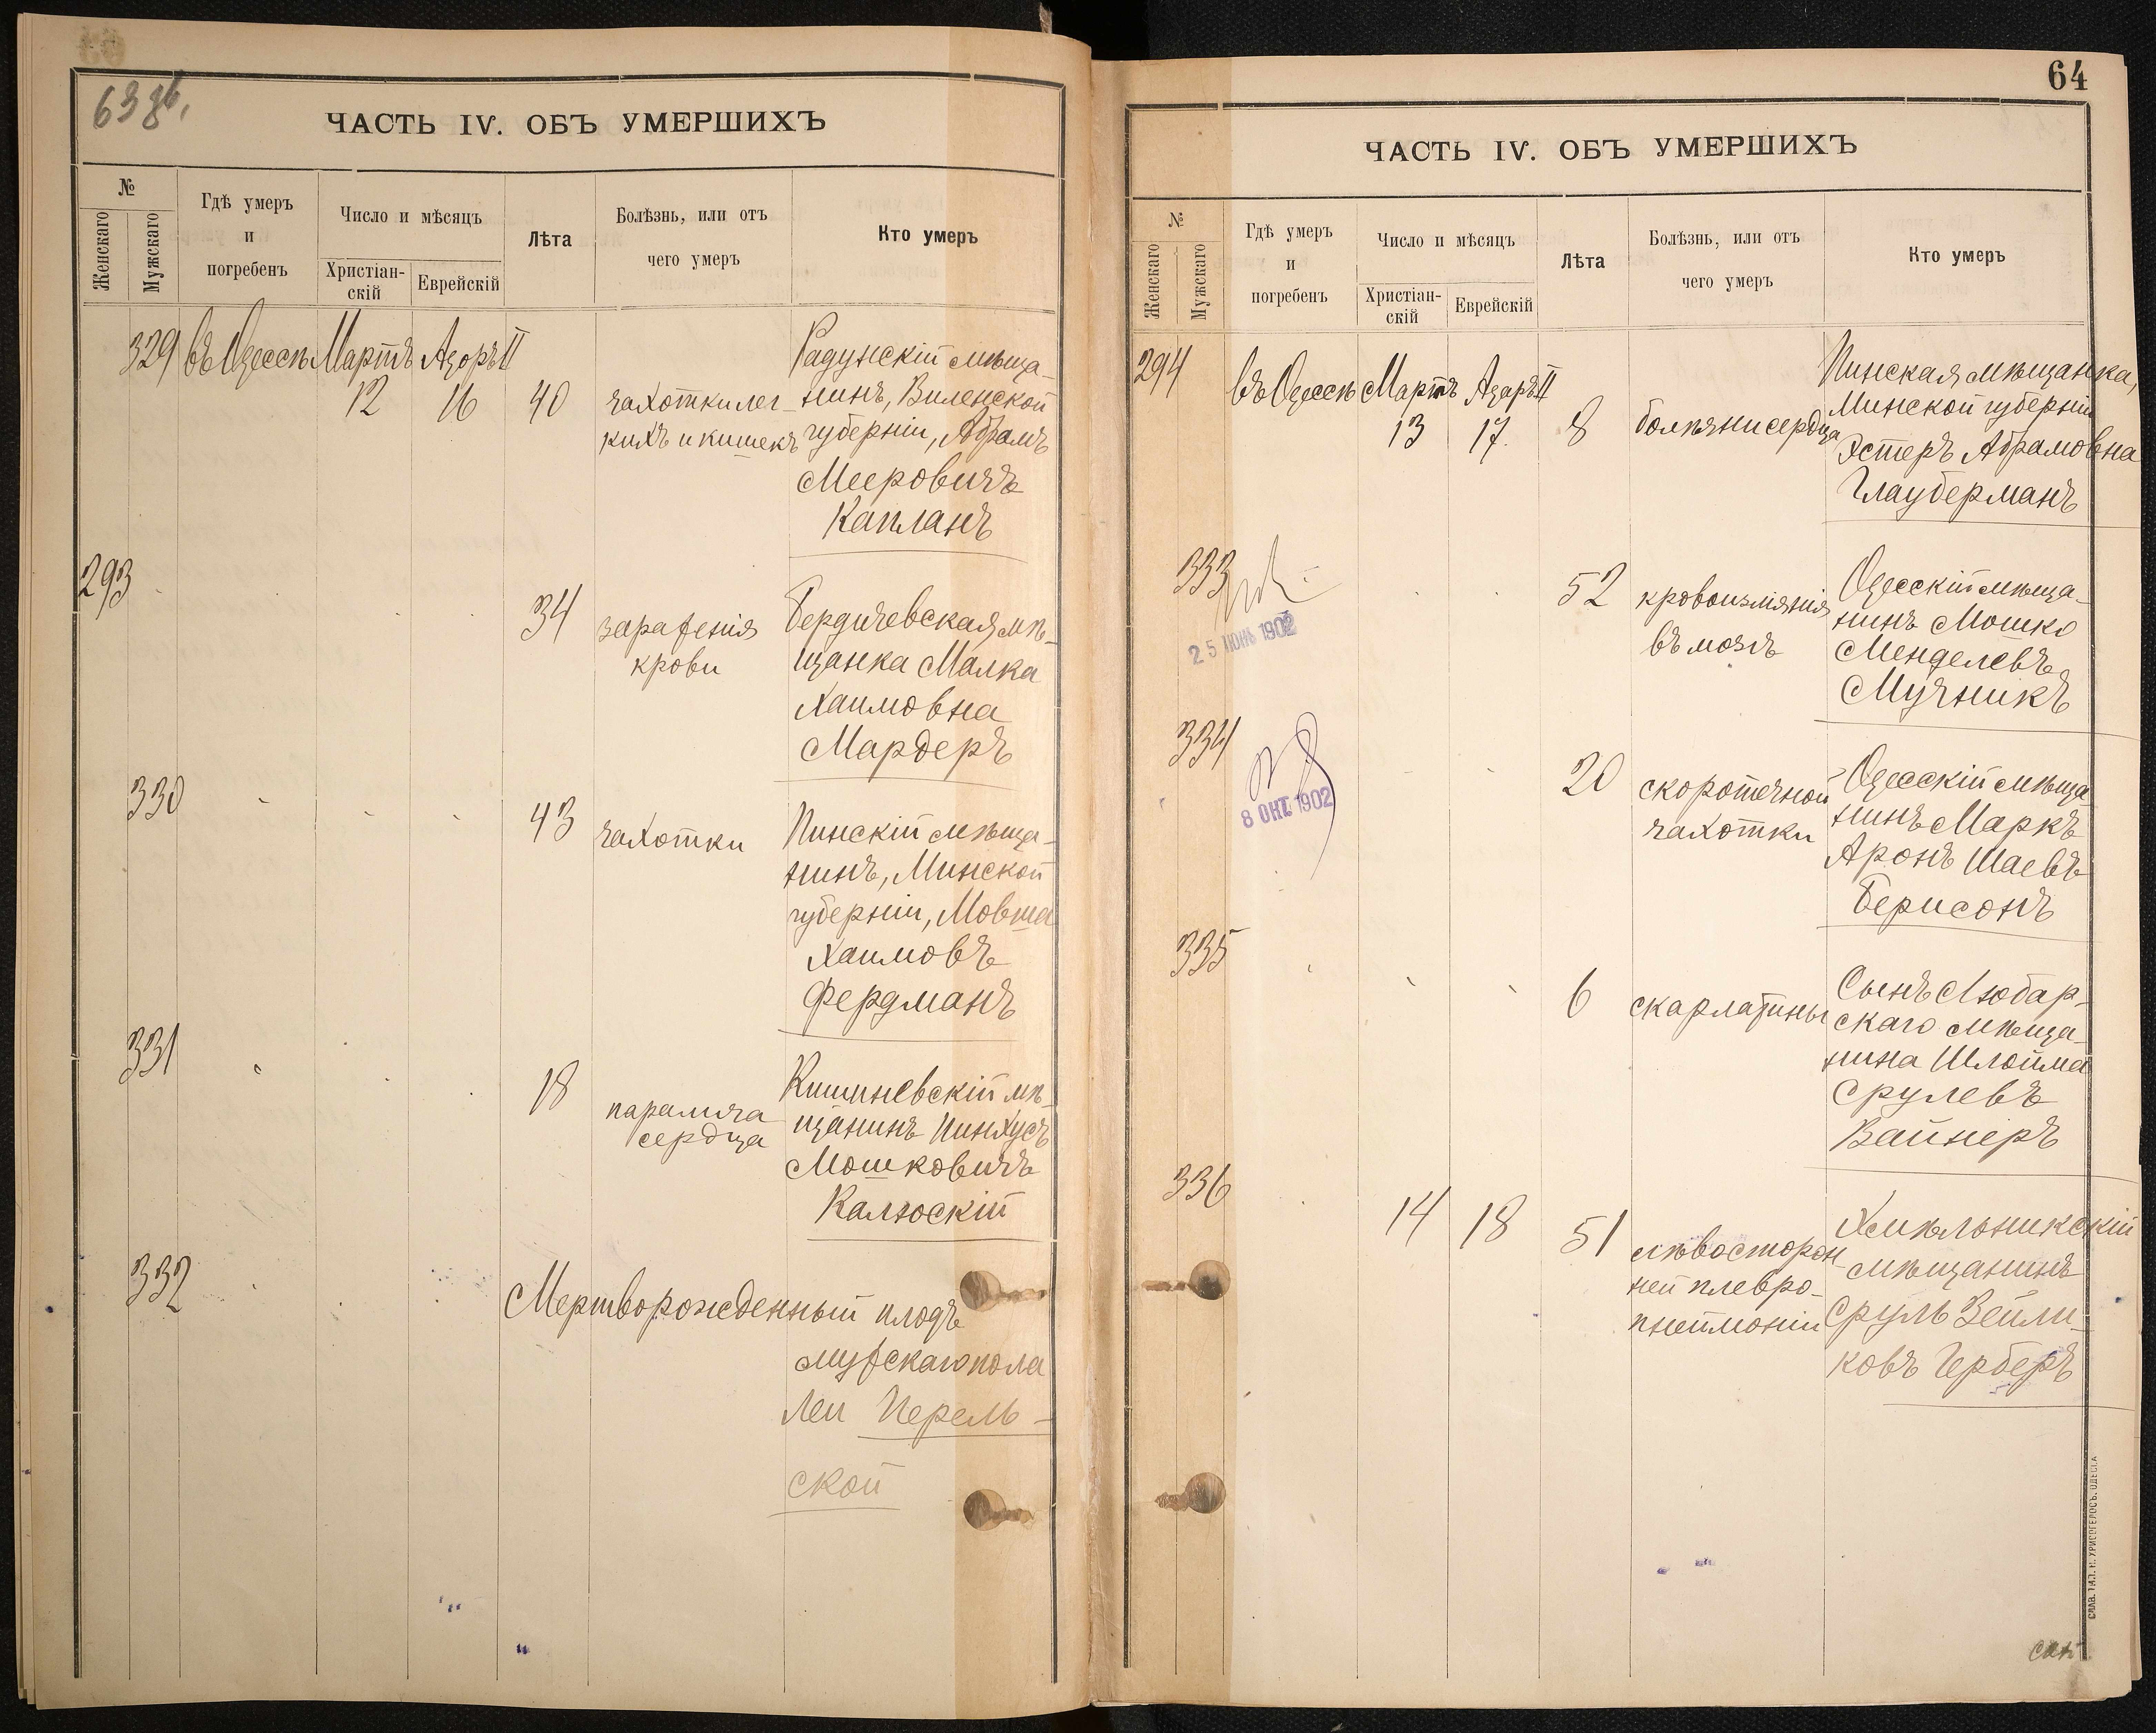 63 об.
ЧАСТЬ IV. ОБЪ УМЕРШИХЪ
№
Женскаго
Мужскаго
Гдѣ умеръ
и
погребенъ
Число и мѣсяцъ
Христіан-
скій
Еврейскій
Лѣта
Болѣзнь, или отъ
чего умеръ
Кто умеръ
329 въ Одессѣ Мартъ Адоръ II
12 16 40
чахотки лег-
кихъ и кишекъ
Радунскій мѣща-
нинъ, Виленской
губерніи, Абрамъ
Мееровичъ
Капланъ
293
34
зараженія
крови
Бердичевская мѣ-
щанка Малка
Хаимовна
Мардеръ
330
43
чахотки
Пинскій мѣща-
нинъ, Минской
губерніи, Мовша
Хаимовъ
Фердманъ
331
18
паралича
сердца
Кишиневскій мѣ-
щанинъ Пинхусъ
Мошковичъ
Калюскій
332
Мертворожденный плодъ
мужскаго пола
Леи Перель-
ской
64
ЧАСТЬ IV. ОБЪ УМЕРШИХЪ
№
Женскаго
Мужскаго
Гдѣ умеръ
и
погребенъ
Число и мѣсяцъ
Христіан-
скій
Еврейскій
Лѣта
Болѣзнь, или отъ
чего умеръ
Кто умеръ
294 въ Одессѣ Мартъ Адаръ II
13 17. 8
болѣзни сердца
Пинская мѣщанка,
Минской губерніи
Эстеръ Абрамовна
Глауберманъ
333
25 ІЮНЬ 1902
52
кровоизліянія
въ мозгъ
Одесскій мѣща-
нинъ Мошко
Менделевъ
Мучникъ
334
8 ОКТ 1902
20
скоротечной
чахотки
Одесскій мѣща
нинъ Маркъ
Аронъ Шаевъ
Берисонъ
335
6
скарлатины
Сынъ Любар-
скаго мѣща-
нина Шлойма
Срулевъ
Вайнеръ
336
14 18 51
лѣвосторон-
ней плевро-
пнеймоніи
Хмѣльникскій
мѣщанинъ
Сруль Зейли-
ковъ Герберъ